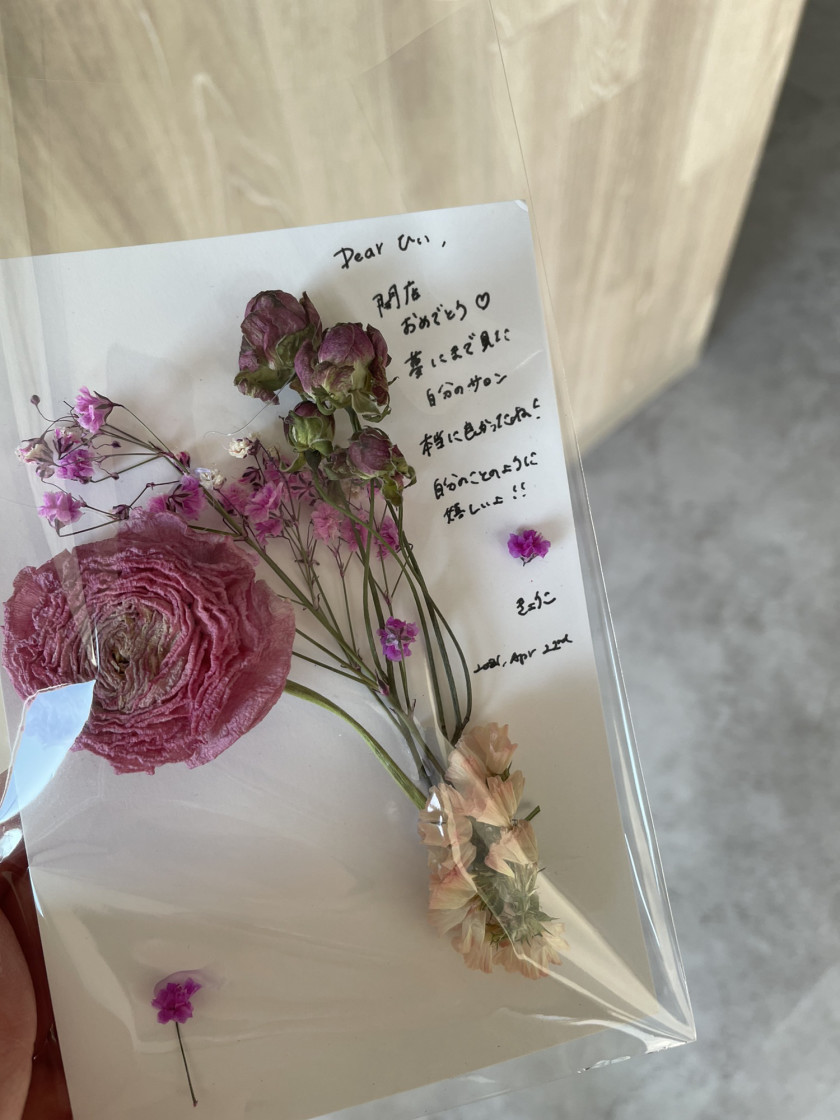 Dear ひぃ,
開店
おめでとう♡
夢にまで見た
自分のサロン
本当に良かったね!
自分のことのように
嬉しいよ!!
きょうこ
Apr 22nd